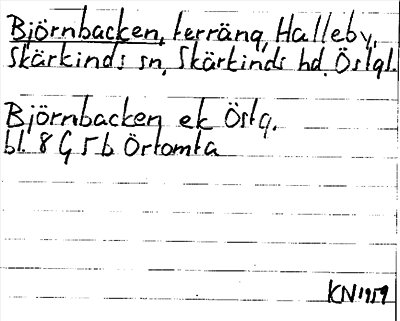 Björnbacken, terräng, Halleby,
Skärkinds sn, Skärkinds hd. Östgl.
Björnbacken ek Östg.
bl. 8 G 5 b Örtomta
KN 1959